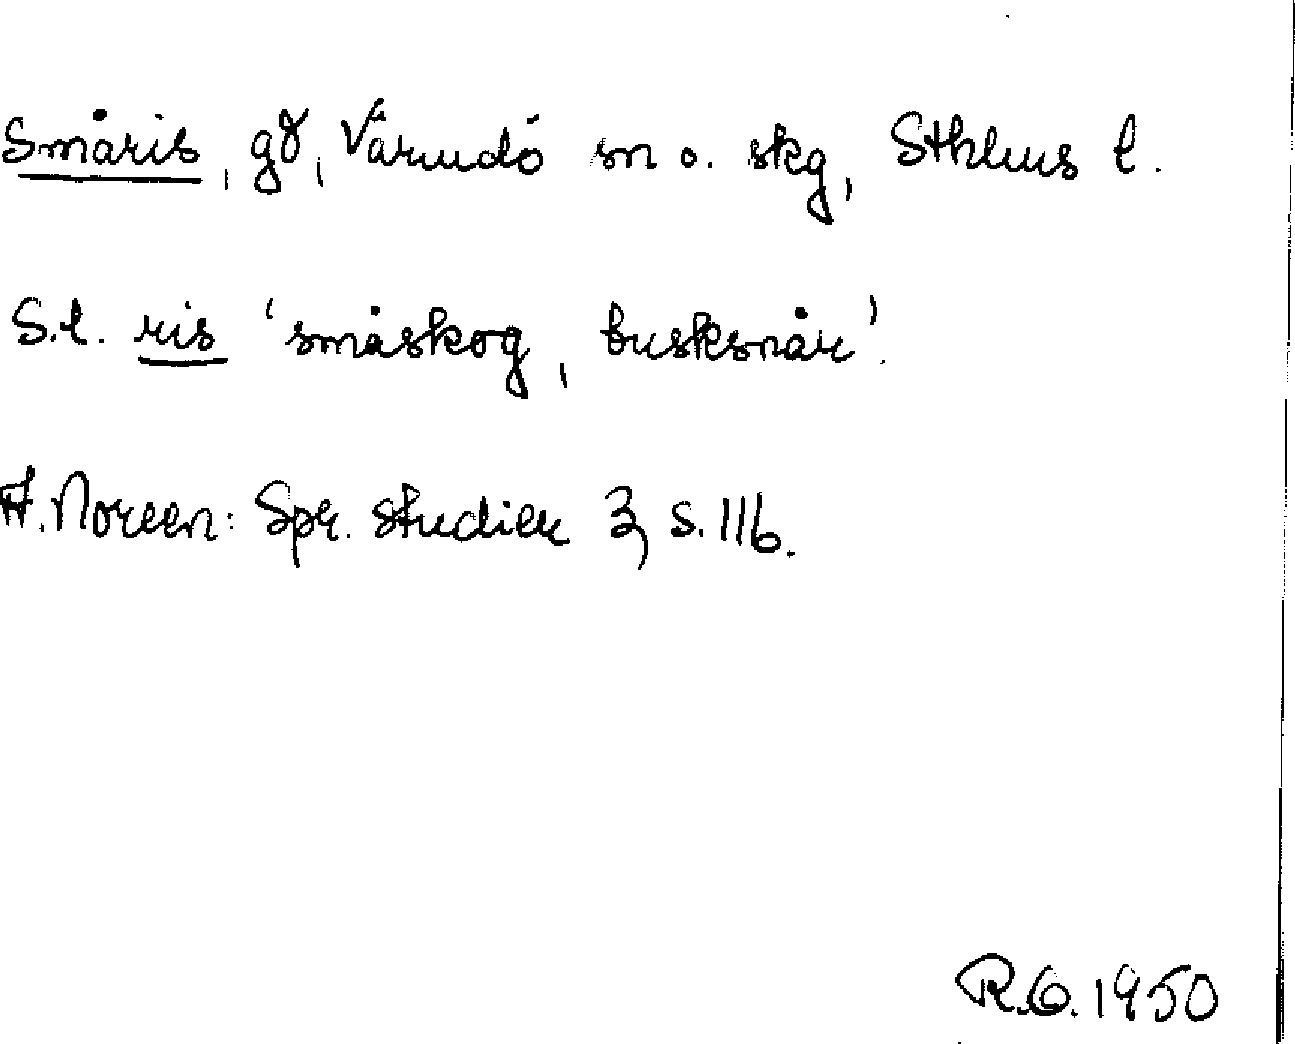 Småris, gd, Värmdö sn o. skg, Sthlms l.
S.l. ris 'småskog, busksnår'.
A. Noreen: Spr. studier 3, s. 116.
R.O. 1950